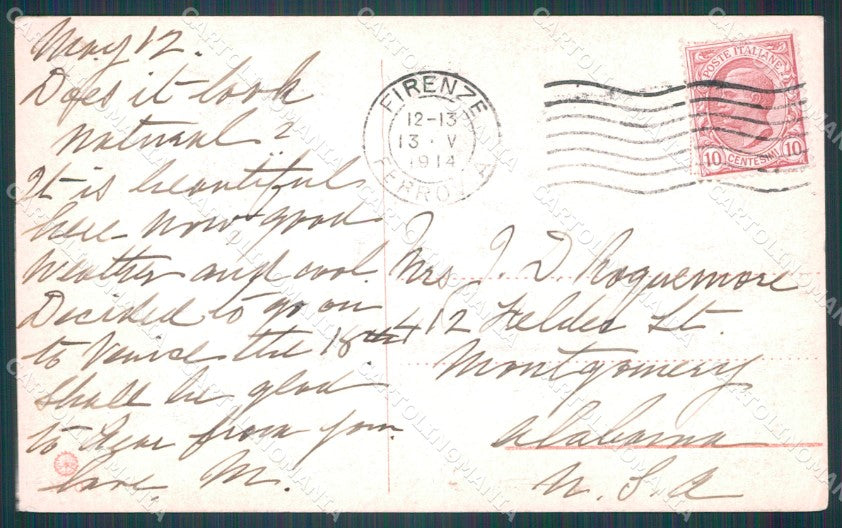 May 12.
Does it look
natural?
It is beautiful
here now good
weather and cool.
Decided to go on
to Venice the 18th
Shall be glad
to hear from you.
love, M.
FIRENZE
12-13
13 · V
1914
FERROVIA
POSTE ITALIANE
10 CENTESIMI 10
Mrs J. D. Roquemore
412 Felder St.
Montgomery
Alabama
U. S. A
CARTOLINOMANIA